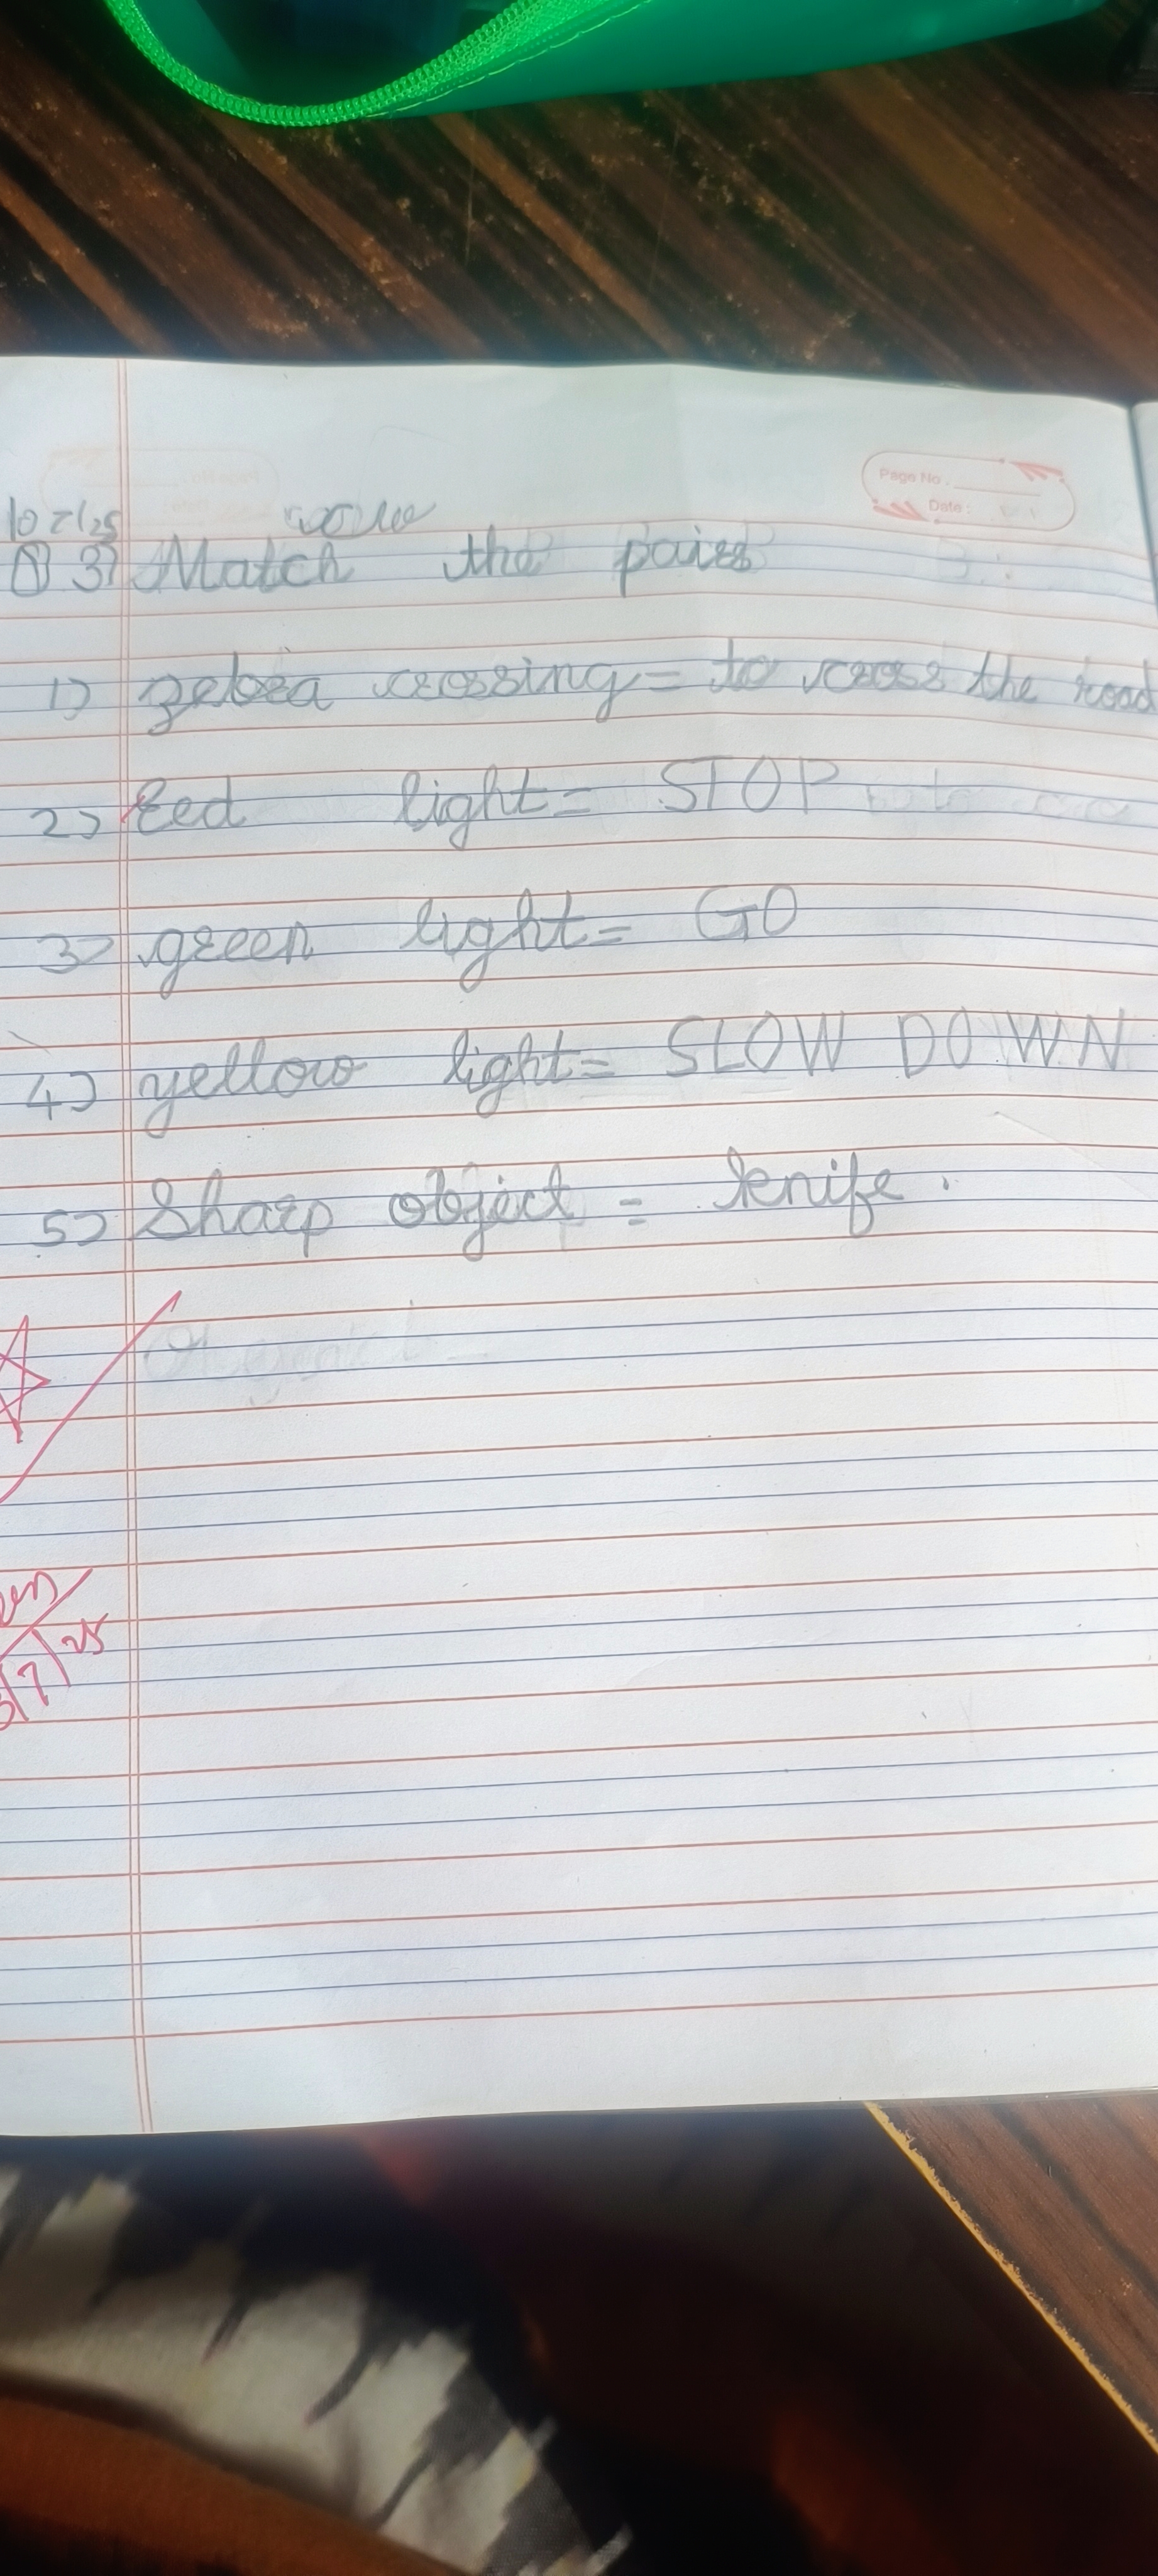 Page No.
Date:
10 7/25
3) Match the pairs
1) zebra crossing = to cross the road
2) Red light = STOP
3) green light = GO
4) yellow light = SLOW DOWN
5) Sharp object = knife.
7/25